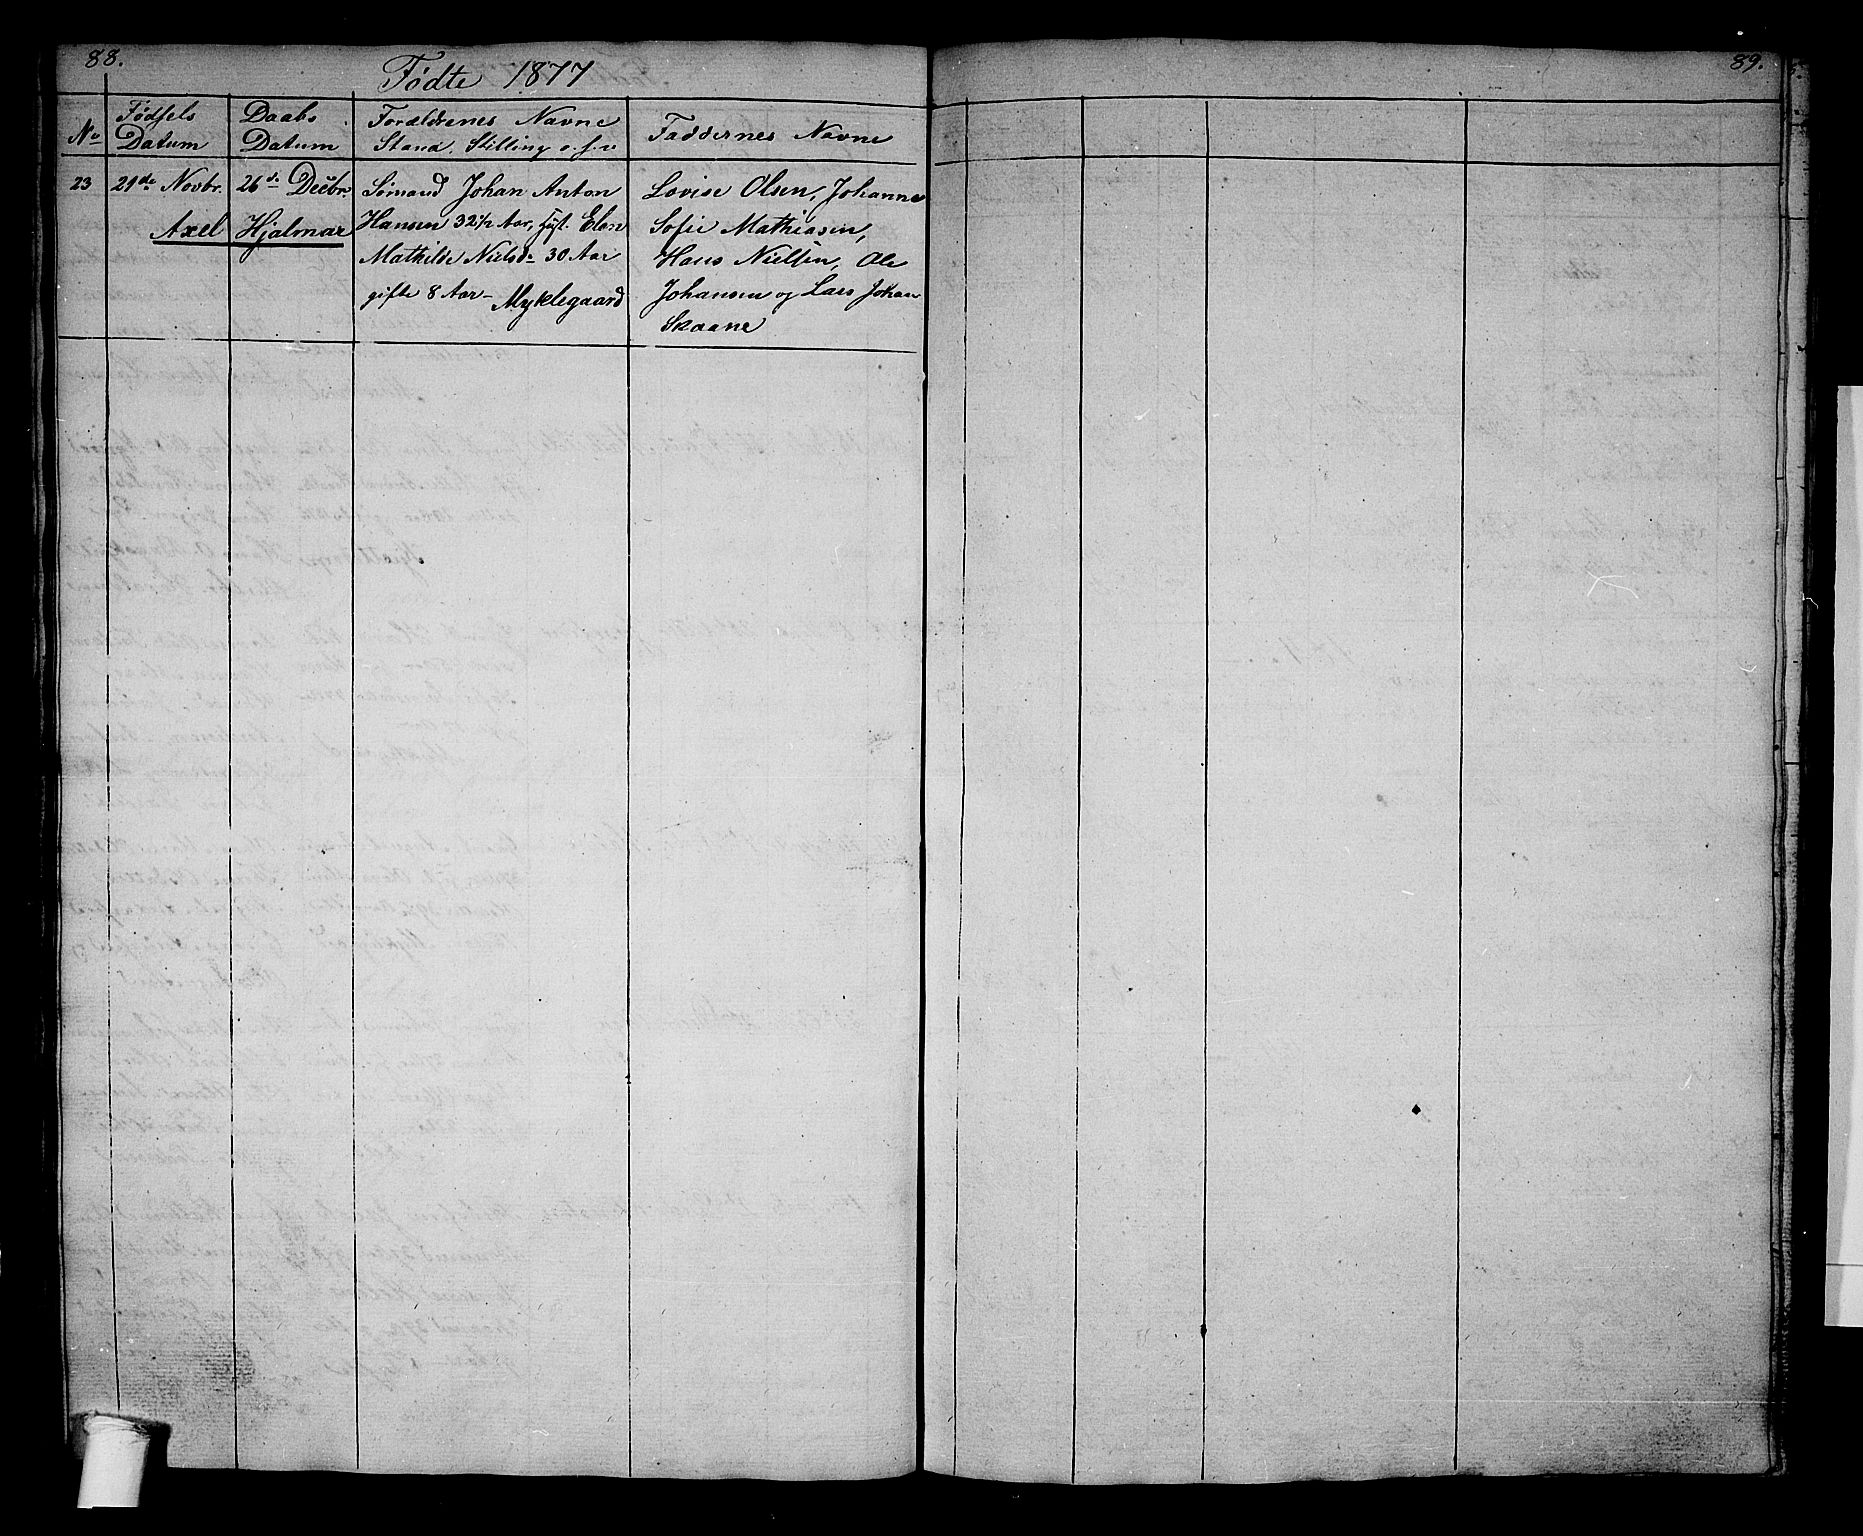 88.
89.
Fødte 1877
No
Fødsels Datum
Daabs Datum
Forældrenes Navne Stand, Stilling o.s.v.
Faddernes Navne
23
21de Novbr.
26de Decbr.
Axel Hjalmar
Sømand Johan Anton
Hansen 32½ Aar, Hust. Elen
Mathilde Nielsdr 30 Aar
gifte 8 Aar - Myklegaard
Lovise Olsen, Johanne
Sofie Mathiasen,
Hans Nielsen, Ole
Johansen og Lars Johan
Skaane